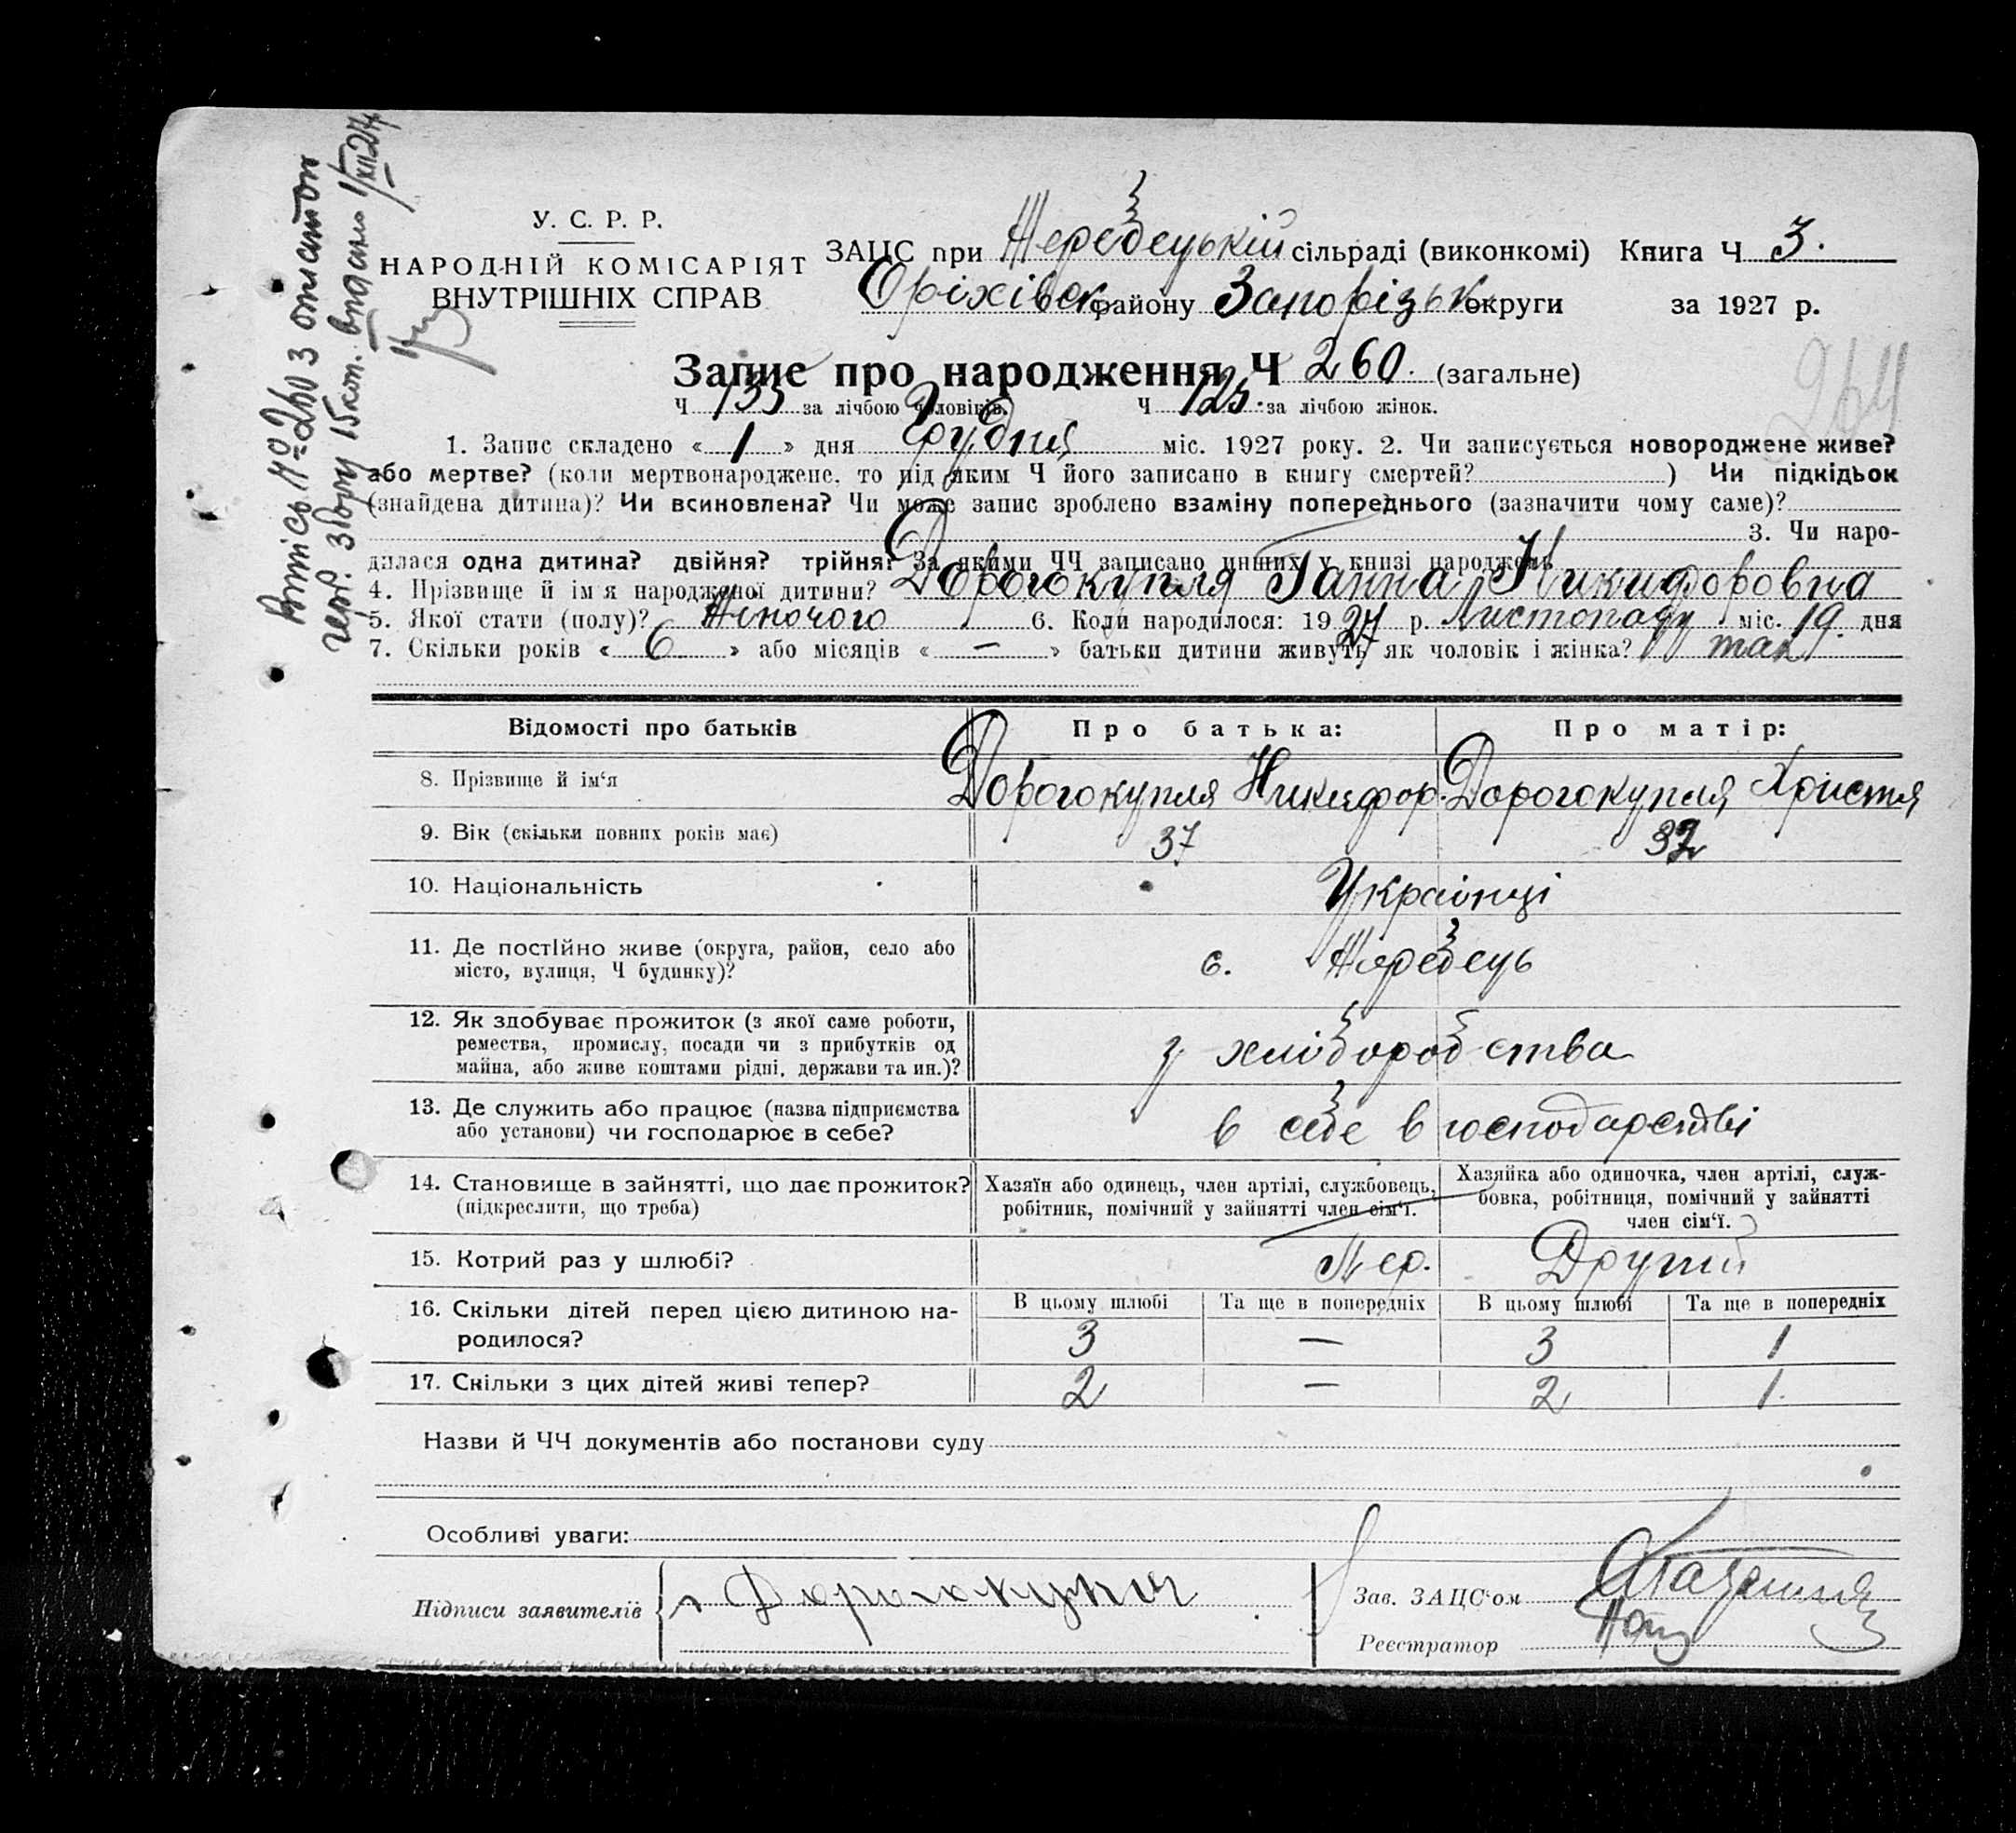 Витпісь № 260 з оплатою
герб. збору 15 коп. видано 1/XII 27
У. С. Р. Р.
НАРОДНІЙ КОМІСАРІЯТ
ВНУТРІШНІХ СПРАВ
ЗАЦС при Жеребецькій сільраді (виконкомі) Книга Ч 3.
Оріхівськ району Запорізьк округи за 1927 р.
264
Запис про народження Ч 260. (загальне)
Ч 135 за лічбою чоловіків. Ч 125. за лічбою жінок.
1. Запис складено « 1 » дня Грудня міс. 1927 року. 2. Чи записується новороджене живе?
або мертве? (коли мертвонароджене, то під яким Ч його записано в книгу смертей? ) Чи підкідьок
(знайдена дитина)? Чи всиновлена? Чи може запис зроблено взаміну попереднього (зазначити чому саме)?
3. Чи наро-
дилася одна дитина? двійня? трійня? За якими ЧЧ записано инших у книзі народжень
4. Прізвище й ім'я народженої дитини? Дорогокупля Ганна Никифоровна
5. Якої стати (полу)? Жіночого 6. Коли народилося: 1927 р. Листопаду міс. 19. дня
7. Скільки років « 6 » або місяців « — » батьки дитини живуть як чоловік і жінка? так
Відомості про батьків Про батька: Про матір:
8. Прізвище й ім'я Дорогокупля Никифор. Дорогокупля Христя
9. Вік (скільки повних років має) 37 32
10. Національність Українці
11. Де постійно живе (округа, район, село або
місто, вулиця, Ч будинку)? с. Жеребець
12. Як здобуває прожиток (з якої саме роботи,
ремества, промислу, посади чи з прибутків од
майна, або живе коштами рідні, держави та ин.)? з хліборобства
13. Де служить або працює (назва підприємства
або установи) чи господарює в себе? в себе в господарстві
14. Становище в зайнятті, що дає прожиток?
(підкреслити, що треба)
Хазяїн або одинець, член артілі, службовець,
робітник, помічний у зайнятті член сім'ї.
Хазяйка або одиночка, член артілі, служ-
бовка, робітниця, помічний у зайнятті
член сім'ї.
15. Котрий раз у шлюбі? Пер. Другий
16. Скільки дітей перед цією дитиною на-
родилося?
В цьому шлюбі Та ще в попередніх В цьому шлюбі Та ще в попередніх
3 — 3 1
17. Скільки з цих дітей живі тепер? 2 — 2 1.
Назви й ЧЧ документів або постанови суду
Особливі уваги:
Підписи заявителів Дорогокупля
Зав. ЗАЦС'ом
Реєстратор